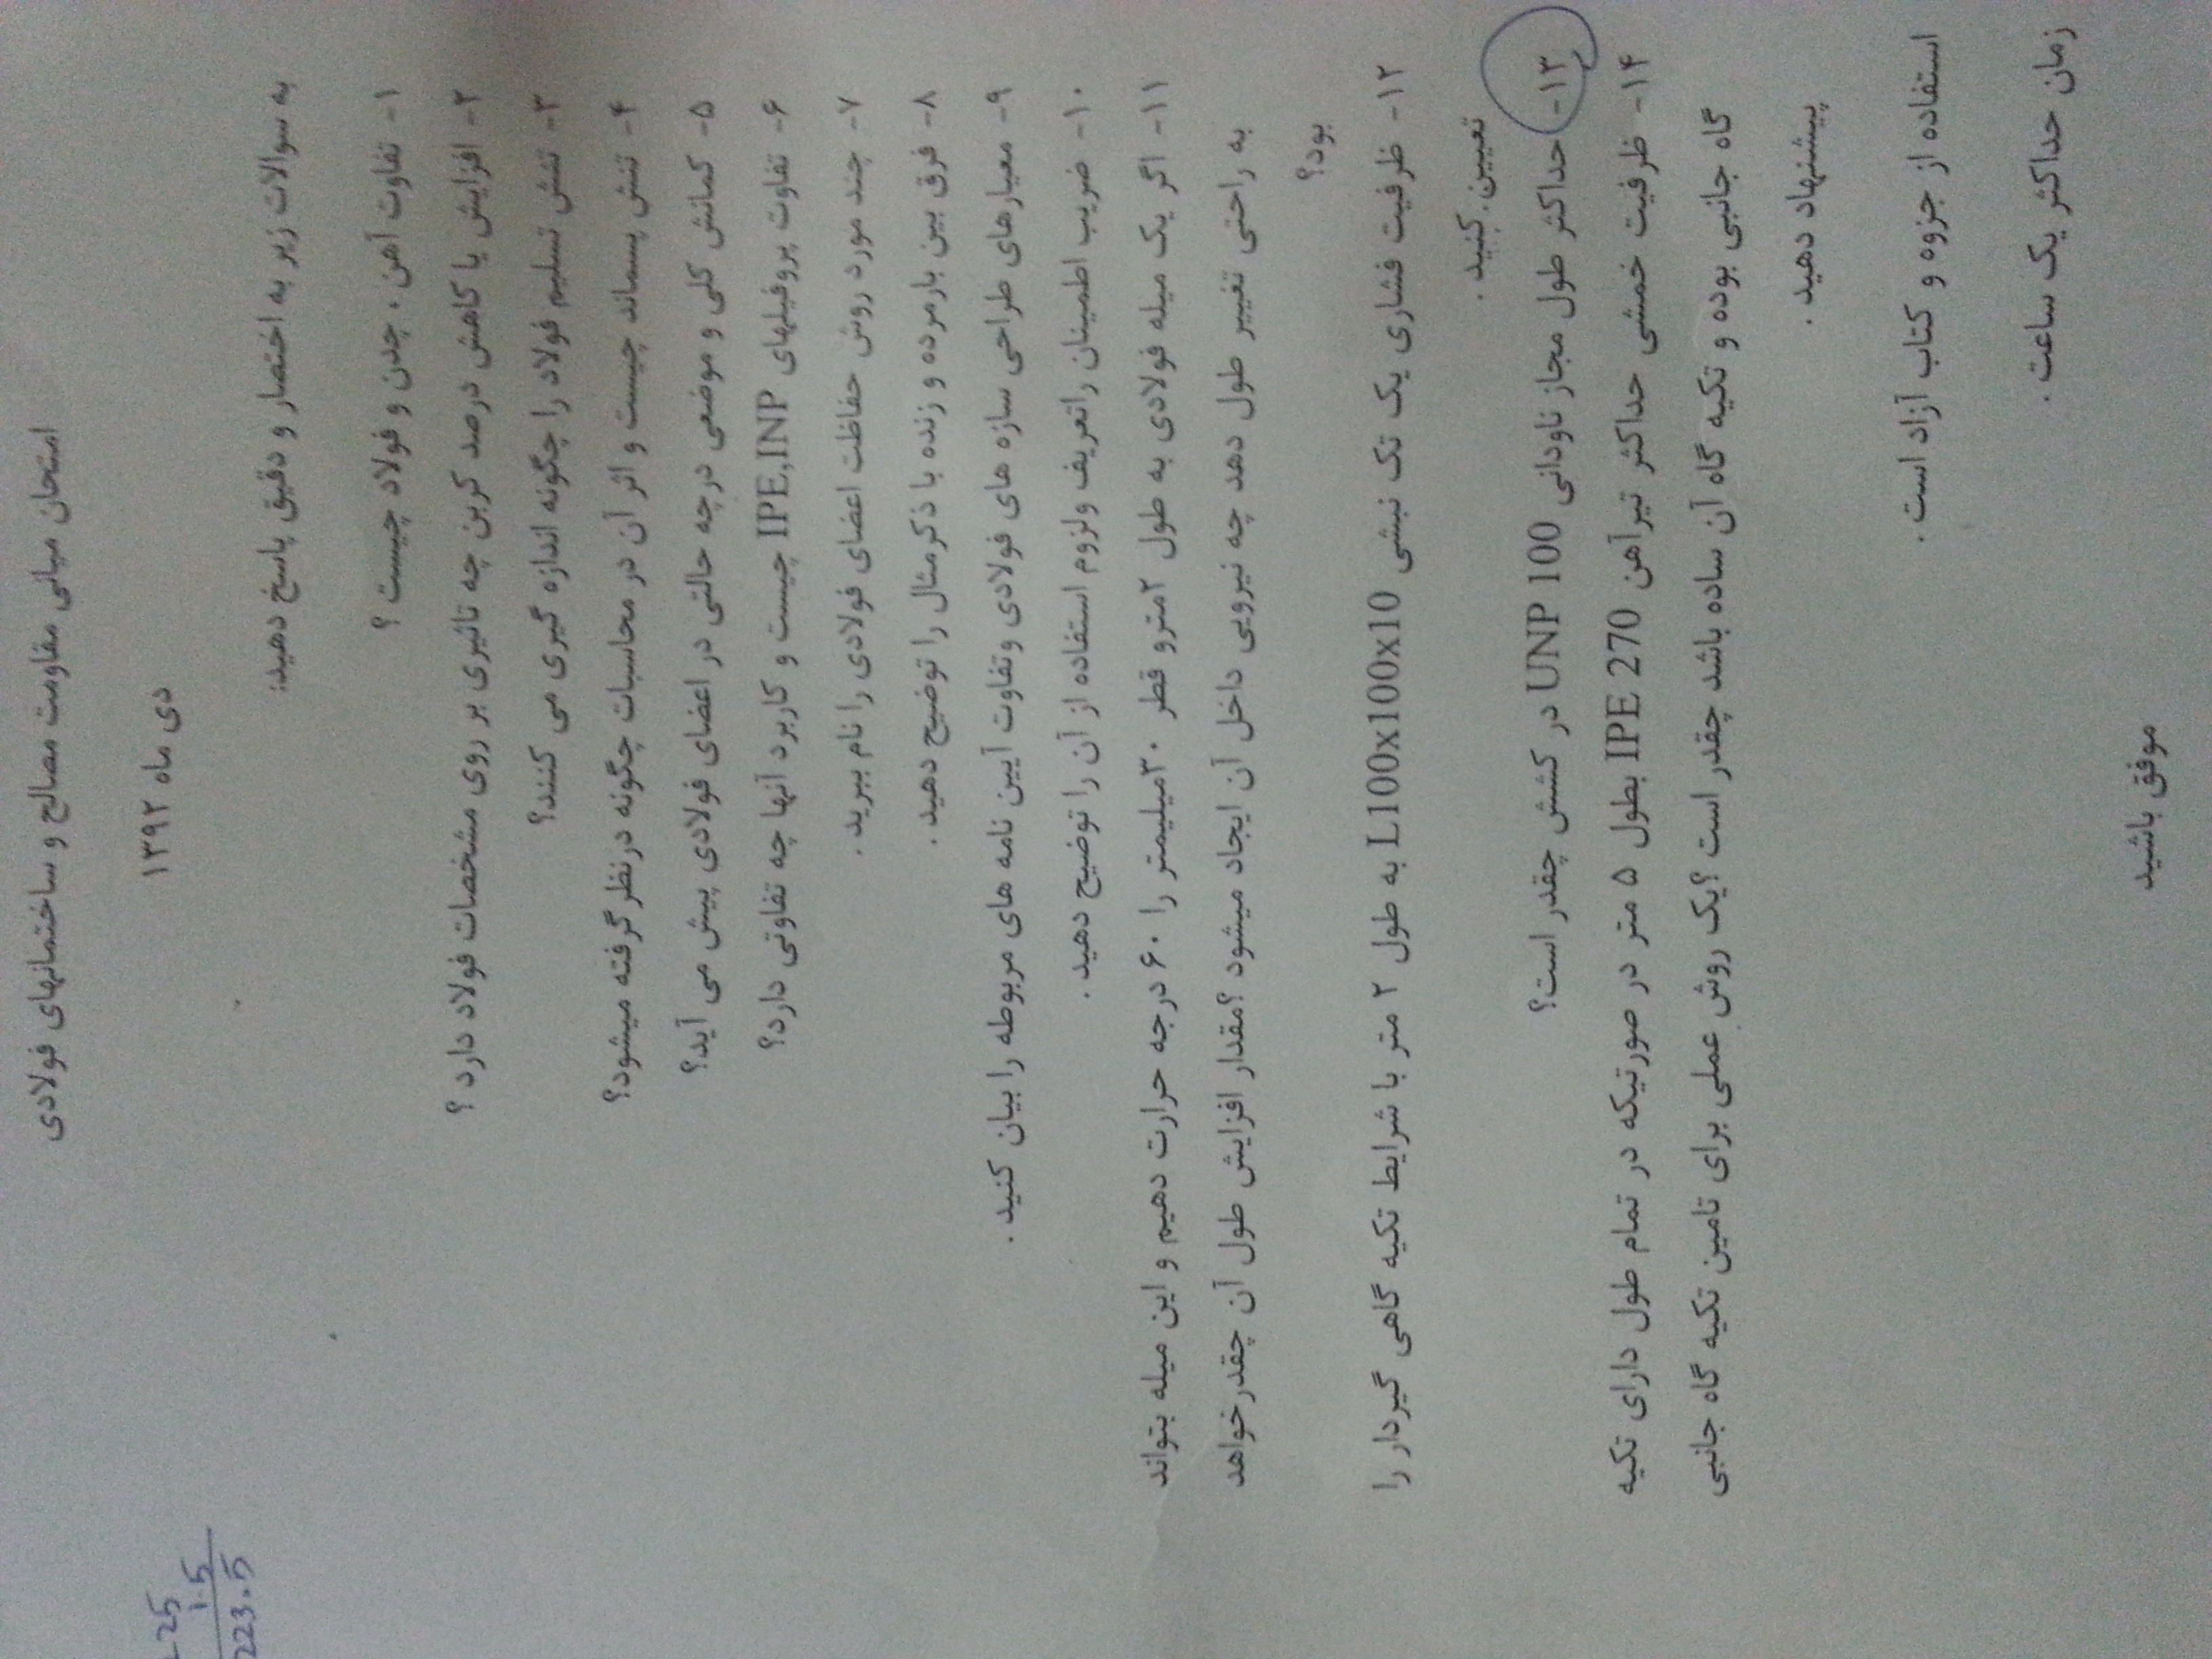 امتحان مبانی مقاومت مصالح و ساختمانهای فولادی
دی ماه ۱۳۹۲
به سوالات زیر به اختصار و دقیق پاسخ دهید:
۱- تفاوت آهن ، چدن و فولاد چیست ؟
۲- افزایش یا کاهش درصد کربن چه تاثیری بر روی مشخصات فولاد دارد ؟
۳- تنش تسلیم فولاد را چگونه اندازه گیری می کنند؟
۴- تنش پسماند چیست و اثر آن در محاسبات چگونه درنظر گرفته میشود؟
۵- کمانش کلی و موضعی درچه حالتی در اعضای فولادی پیش می آید؟
۶- تفاوت پروفیلهای IPE,INP چیست و کاربرد آنها چه تفاوتی دارد؟
۷- چند مورد روش حفاظت اعضای فولادی را نام ببرید .
۸- فرق بین بارمرده و زنده با ذکرمثال را توضیح دهید .
۹- معیارهای طراحی سازه های فولادی وتفاوت آیین نامه های مربوطه را بیان کنید .
۱۰- ضریب اطمینان راتعریف ولزوم استفاده از آن را توضیح دهید .
۱۱- اگر یک میله فولادی به طول ۲مترو قطر ۳۰میلیمتر را ۶۰ درجه حرارت دهیم و این میله بتواند
به راحتی تغییر طول دهد چه نیرویی داخل آن ایجاد میشود ؟مقدار افزایش طول آن چقدرخواهد
بود؟
۱۲- ظرفیت فشاری یک تک نبشی L100x100x10 به طول ۲ متر با شرایط تکیه گاهی گیردار را
تعیین. کنید .
۱۳- حداکثر طول مجاز ناودانی UNP 100 در کشش چقدر است؟
۱۴- ظرفیت خمشی حداکثر تیرآهن IPE 270 بطول ۵ متر در صورتیکه در تمام طول دارای تکیه
گاه جانبی بوده و تکیه گاه آن ساده باشد چقدر است ؟یک روش عملی برای تامین تکیه گاه جانبی
پیشنهاد دهید .
استفاده از جزوه و کتاب آزاد است .
زمان حداکثر یک ساعت .
موفق باشید
25
1.5
223.5